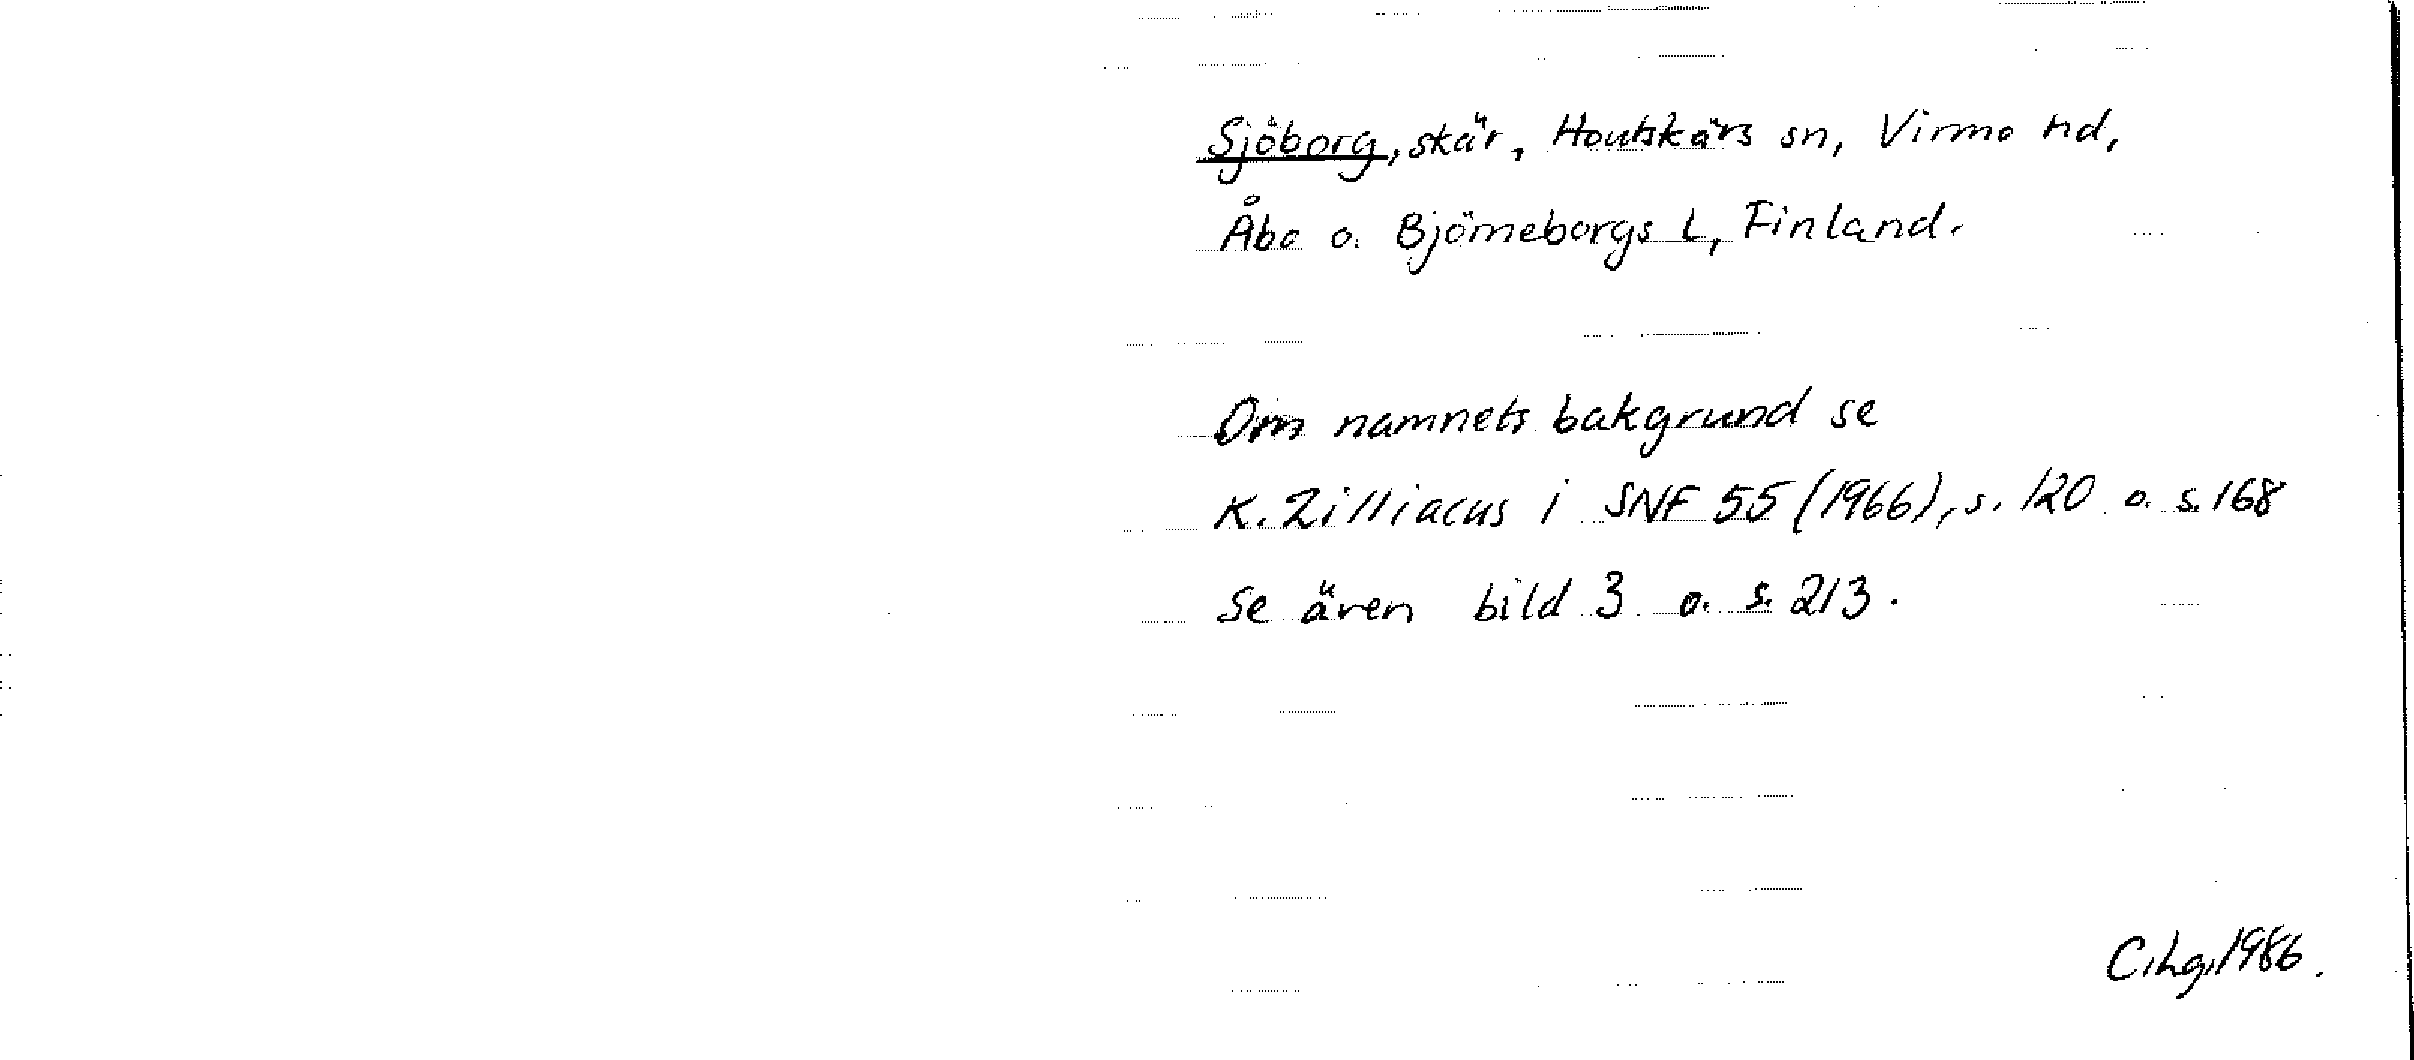 Sjöborg, skär, Houtskärs sn, Virmo hd,
Åbo o. Björneborgs l, Finland.
Om namnets bakgrund se
K. Zilliacus i SNF 55 (1966), s. 120 o. s. 168
Se även bild 3 o. s. 213.
C.hg. 1986.